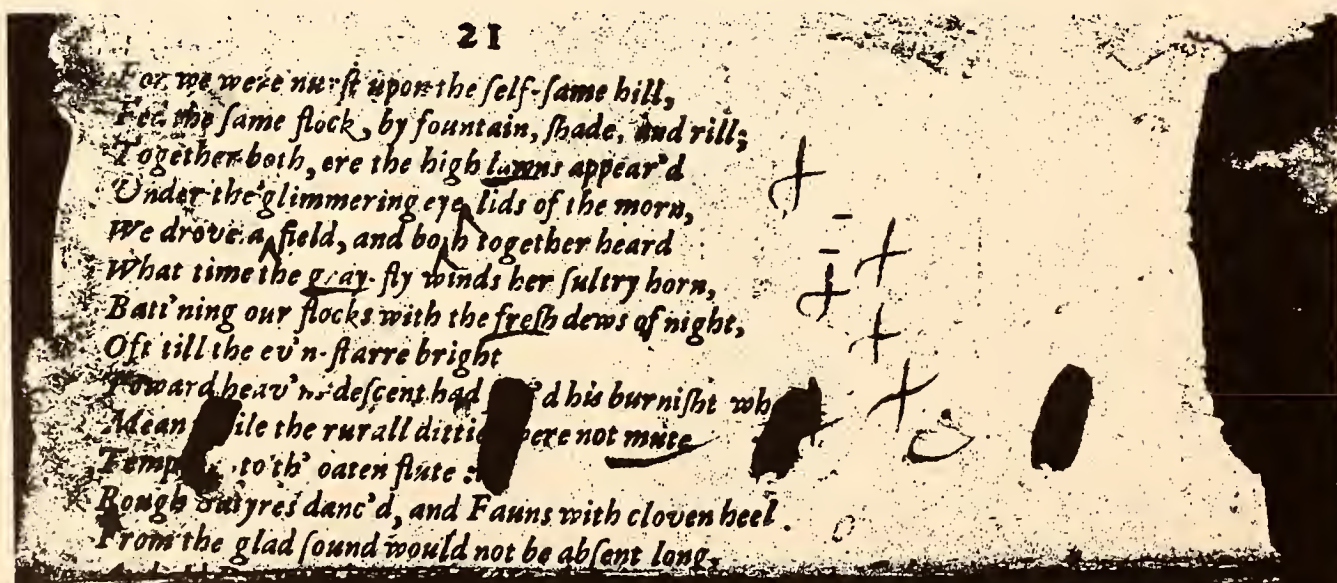 21
For we were nurst upon the self-same hill,
Fed the same flock, by fountain, shade, and rill;
Together both, ere the high lawns appear'd
Under the glimmering eye lids of the morn,
We drove a field, and both together heard
What time the gray-fly winds her sultry horn,
Batt'ning our flocks with the fresh dews of night,
Oft till the ev'n-starre bright
Toward heav'ns descent had 'd his burnisht wh
Mean ile the rurall ditties were not mute
Temp to th' oaten flute:
Rough Satyres danc'd, and Fauns with cloven heel
From the glad sound would not be absent long,